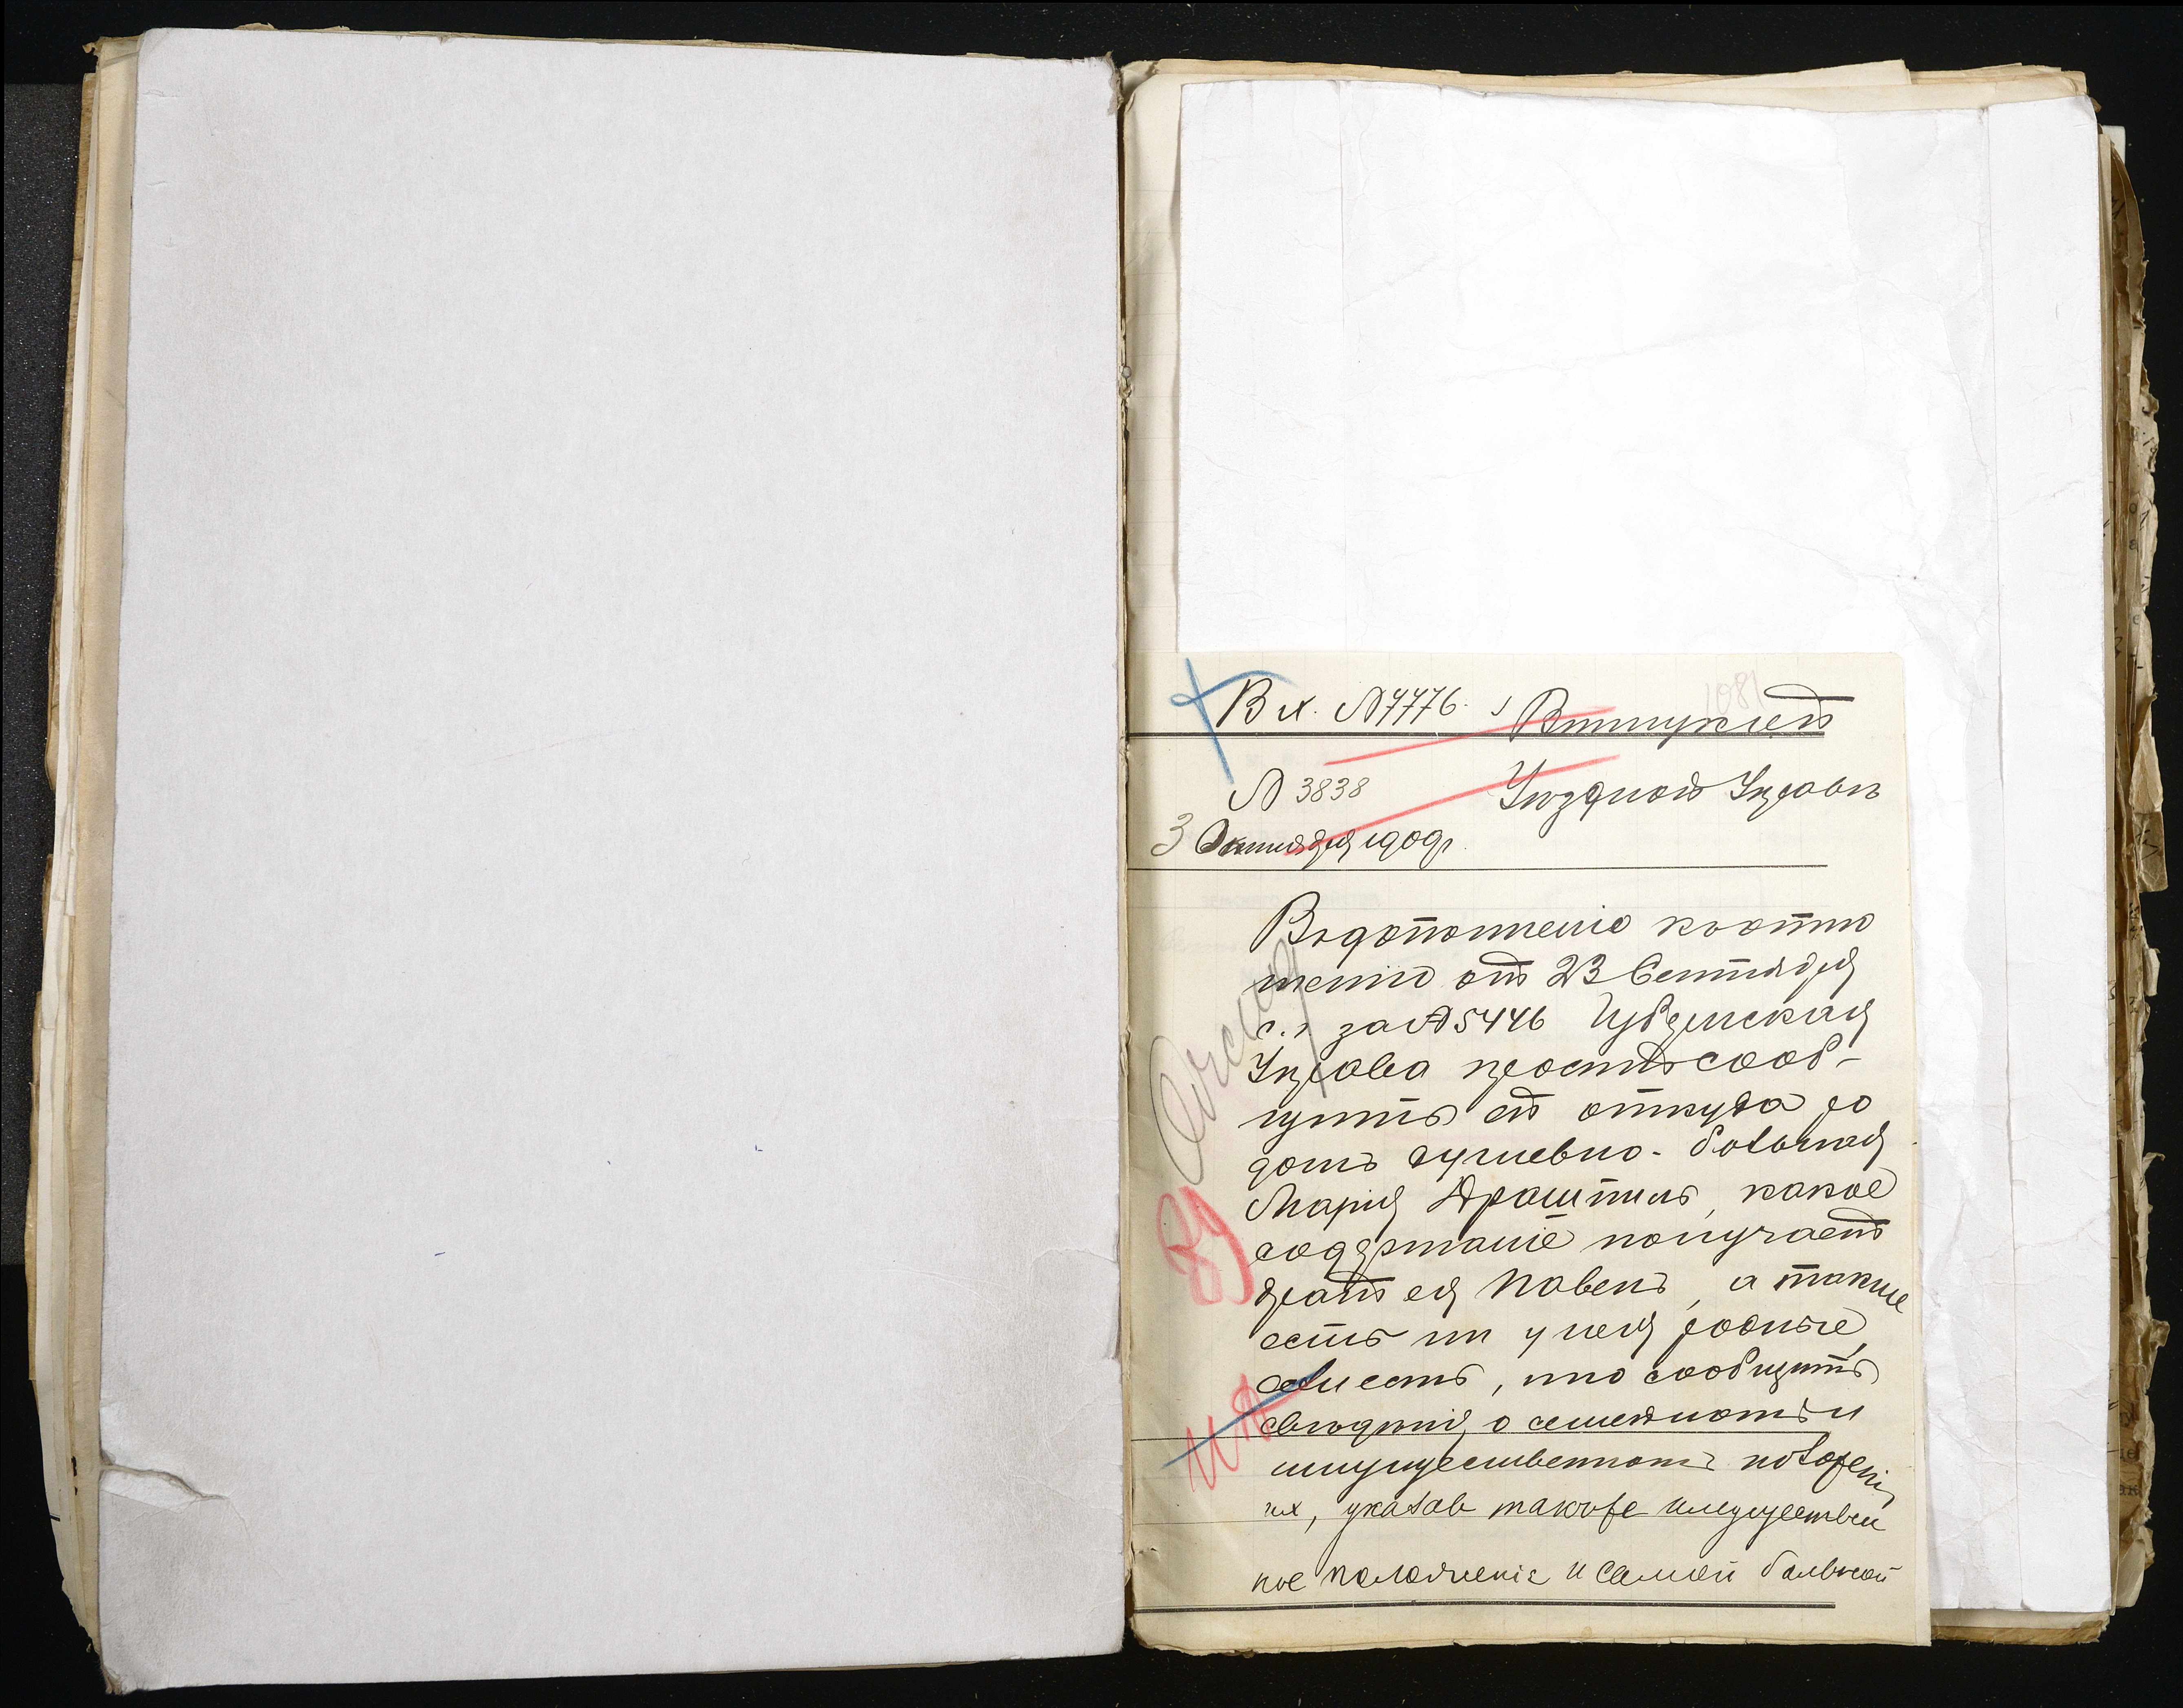 Вх. №7776.
1081
№ 3838
Уѣздной Управѣ
3 Октября 1909г.
Въ дополненіе къ отно
шенію отъ 23 Сентября
с.г. за №5446 Губернская
Управа проситъ сооб-
щить ей откуда ро
домъ душевно-больная
Марія Драшпиль, какое
содержаніе получаетъ
братъ ея Павелъ, а также
есть ли у нея родные,
если есть, то сообщить
свѣдѣнія о семейномъ и
имущественномъ положеніи
их, указав таковое имуществен
ное положеніе и самой больной